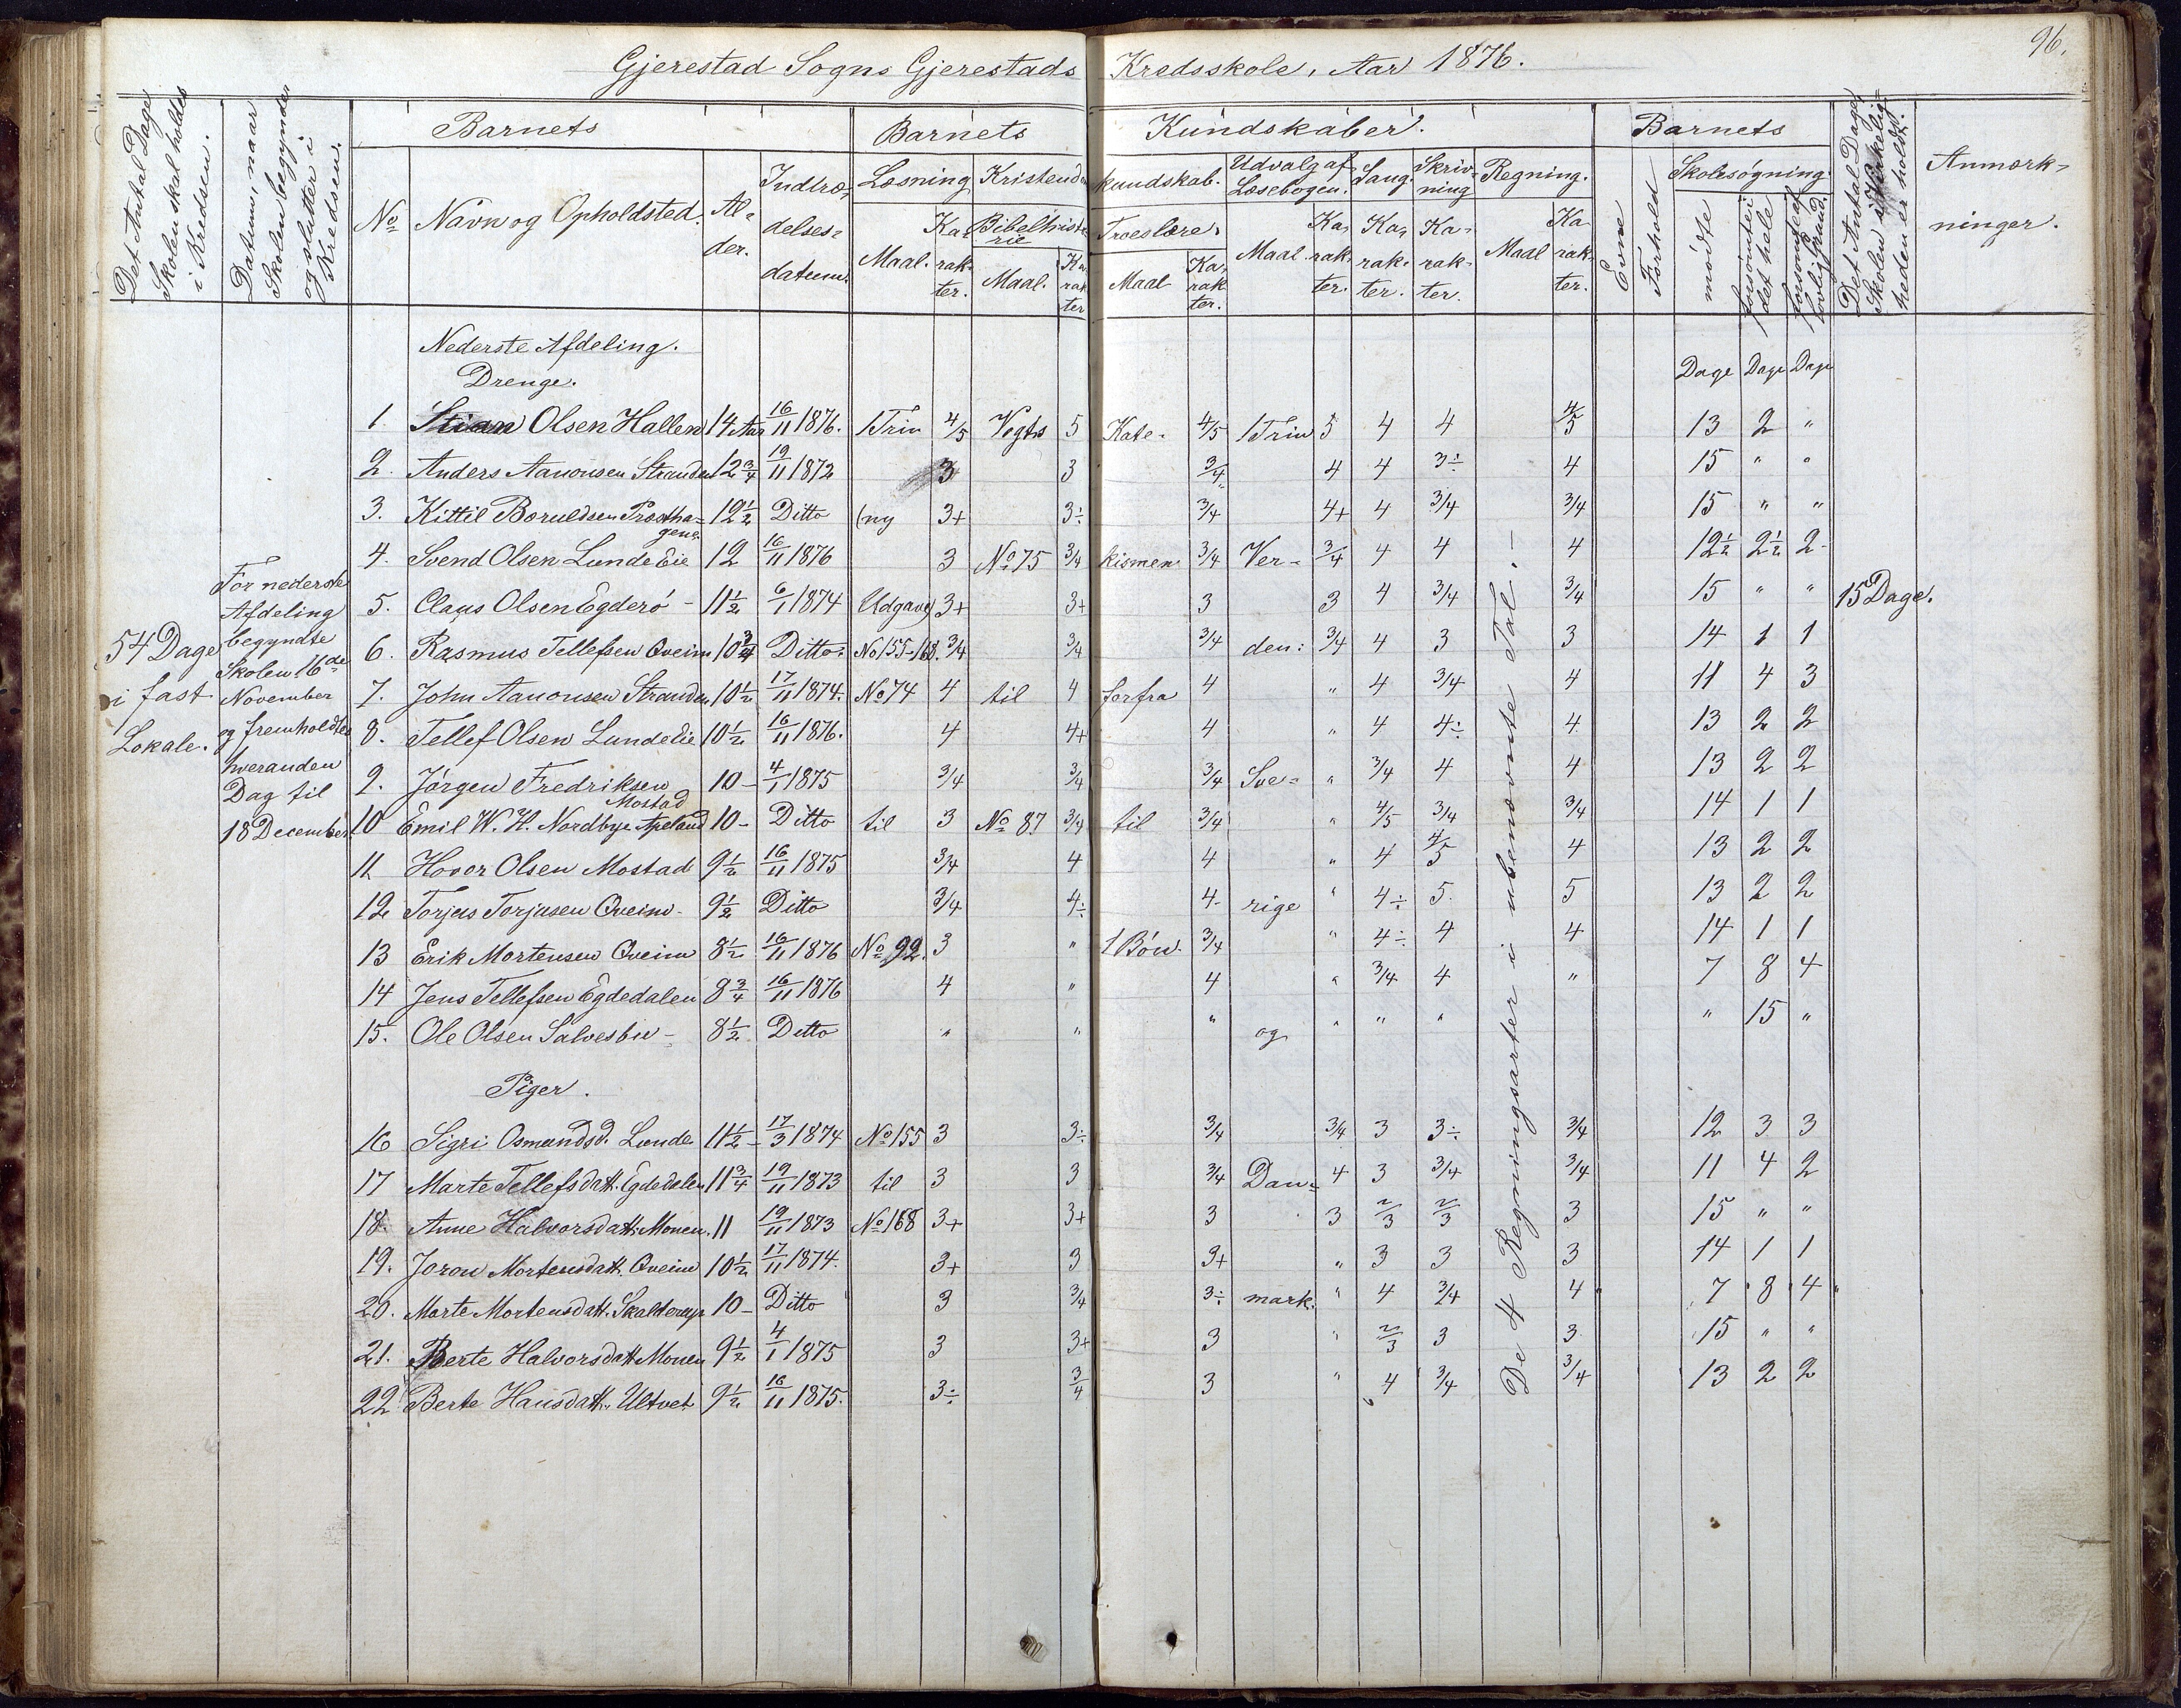 96.
Gjerestad Sogns Gjerestads Kredsskole, Aar 1876.
Det Antal Dage Skolen skal holdes i Kredsen.
Datum, naar Skolen begynder og slutter i Kredsen.
Barnets
Barnets Kundskaber.
Barnets
Det Antal Dage Skolen i Virkeligheden er holdt.
Anmærkninger.
No Navn og Opholdsted. Alder. Indtrædelsesdatum.
Læsning Kristendomskundskab. Udvalg af Læsebogen. Sang. Skrivning Regning.
Evne Forhold Skolesøgning.
Maal. Karakter. Bibelhistorie Maal. Karakter Troeslære. Maal Karakter. Maal Karakter. Karakter. Karakter. Maal Karakter.
mødte forsømte i det hele forsømte af lovlig Grund.
Nederste Afdeling.
Drenge.
Dage Dage Dage
1. Stian Olsen Hallen 14 Aar 16/11 1876. 1 Trin 4/5 Vogts 5 Kate- 4/5 1 Trin 5 4 4 4/5 13 2 "
2. Anders Aanonsen Stranden 12 3/4 19/11 1872 3 3 3/4 4 4 3÷ 4 15 " "
3. Kittil Boruldsen Præsthagene 12 1/2 Ditto (ny 3+ 3÷ 3/4 4+ 4 3/4 3/4 15 " "
4. Svend Olsen Lunde Eie 12 16/11 1876 3 No 75 3/4 kismen 3/4 Ver- 3/4 4 4 4 12 1/2 2 1/2 2-
5. Claus Olsen Egderø - 11 1/2 6/1 1874 Udgave) 3+ 3+ 3 3 4 3/4 3/4 15 " " 15 Dage.
6. Rasmus Tellefsen Qveim 10 3/4 Ditto No 155-168. 3/4 3/4 3/4 den: 3/4 4 3 3 14 1 1
7. John Aanonsen Stranden 10 1/2 17/11 1874. No 74 4 til 4 forfra 4 " 4 3/4 4 11 4 3
8. Tellef Olsen Lunde Eie 10 1/2 16/11 1876. 4 4+ 4 " 4 4÷ 4 13 2 2
9. Jørgen Fredriksen Mostad 10 - 4/1 1875 3/4 3/4 3/4 Sve- " 3/4 4 4 13 2 2
10 Emil W. H. Nordbye Apeland 10 - Ditto til 3 No 87 3/4 til 3/4 " 4/5 3/4 3/4 14 1 1
11 Hovor Olsen Mostad 9 1/2 16/11 1875 3/4 4 4 " 4 4/5 4 13 2 2
12 Torjus Torjusen Qveim - 9 1/2 Ditto 3/4 4÷ 4- rige " 4÷ 5. 5 13 2 2
13 Erik Mortensen Qveim 8 1/2 16/11 1876 No 92. 3 " 1 Bøn. 3/4 " 4÷ 4 4 14 1 1
14 Jens Tellefsen Egdedalen 8 3/4 16/11 1876 4 " 4 " 3/4 4 " 7 8 4
15. Ole Olsen Salvesbu - 8 1/2 Ditto " " " og " " " " 15 "
Piger.
16 Sigri Osmundsd. Lunde 11 1/2 - 17/3 1874 No 155 3 3÷ 3/4 3/4 3 3÷ 3/4 12 3 3
17 Marte Tellefsdatt. Egdedalen 11 3/4 19/11 1873 til 3 3 3/4 Dan- 4 3 3/4 3/4 11 4 2
18. Anne Halvorsdatt. Monen. 11 19/11 1873 No 168 3+ 3+ 3 3 2/3 2/3 3 15 " "
19. Joron Mortensdatt. Qveim 10 1/2 17/11 1874. 3+ 3 3+ " 3 3 3 14 1 1
20. Marte Mortensdatt. 10 - Ditto 3 3/4 3÷ mark. " 4 3/4 4 7 8 4
21. Berte Halvorsdatt. Monen 9 1/2 4/1 1875 3 3+ 3 " 2/3 3 3 15 " "
22 Berte Hansdatt. Ultvet 9 1/2 16/11 1875. 3÷ 3/4 3 " 4 3/4 3/4 13 2 2
De 4 Regningsarter i ubenævnte Tal. -
54 Dage
i fast
Lokale.
For nederste
Afdeling
begyndte
Skolen 16de
November
og fremholdtes
hveranden
Dag til
18 December.